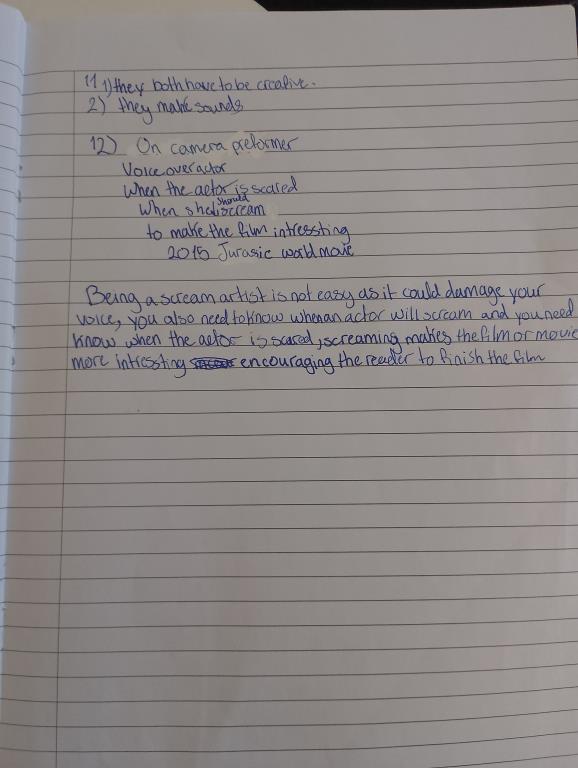 11 1) they both have to be creative.
2) they make sounds
12) On camera preformer
Voice over actor
When the actor is scared
When she should scream
to make the film intressting
2015 Jurasic world movie
Being a scream artist is not easy as it could damage your
voice, you also need to know when an actor will scream and you need
know when the actor is scared, screaming makes the film or movie
more intressting encouraging the reader to finish the film